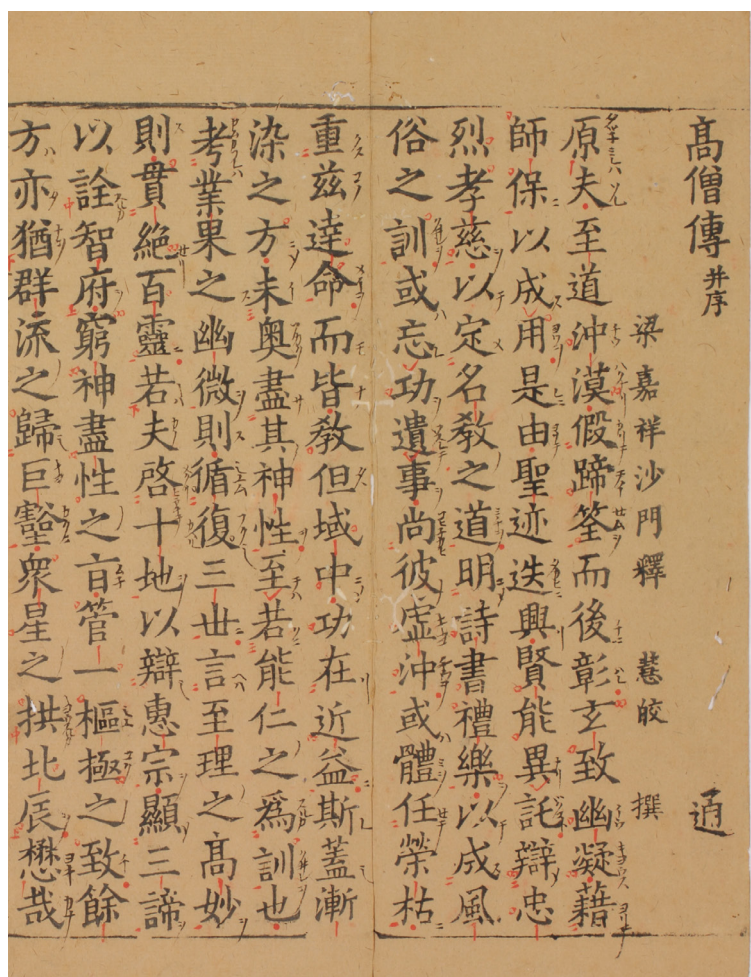 髙僧傳并序 通
梁嘉祥沙門釋 慧皎 撰
原夫至道沖漠假蹄筌而後彰玄致幽凝藉
師保以成用是由聖迹迭興賢能異託辯忠
烈孝慈以定名教之道明詩書禮樂以成風
俗之訓或忘功遺事尚彼虛沖或體任榮枯
重茲達命而皆教但域中功在近益斯蓋漸
染之方未奧盡其神性至若能仁之爲訓也
考業果之幽微則循復三世言至理之髙妙
則貫絶百靈若夫啓十地以辯惠宗顯三諦
以詮智府窮神盡性之旨管一樞極之致餘
方亦猶群流之歸巨壑衆星之拱北辰懋哉